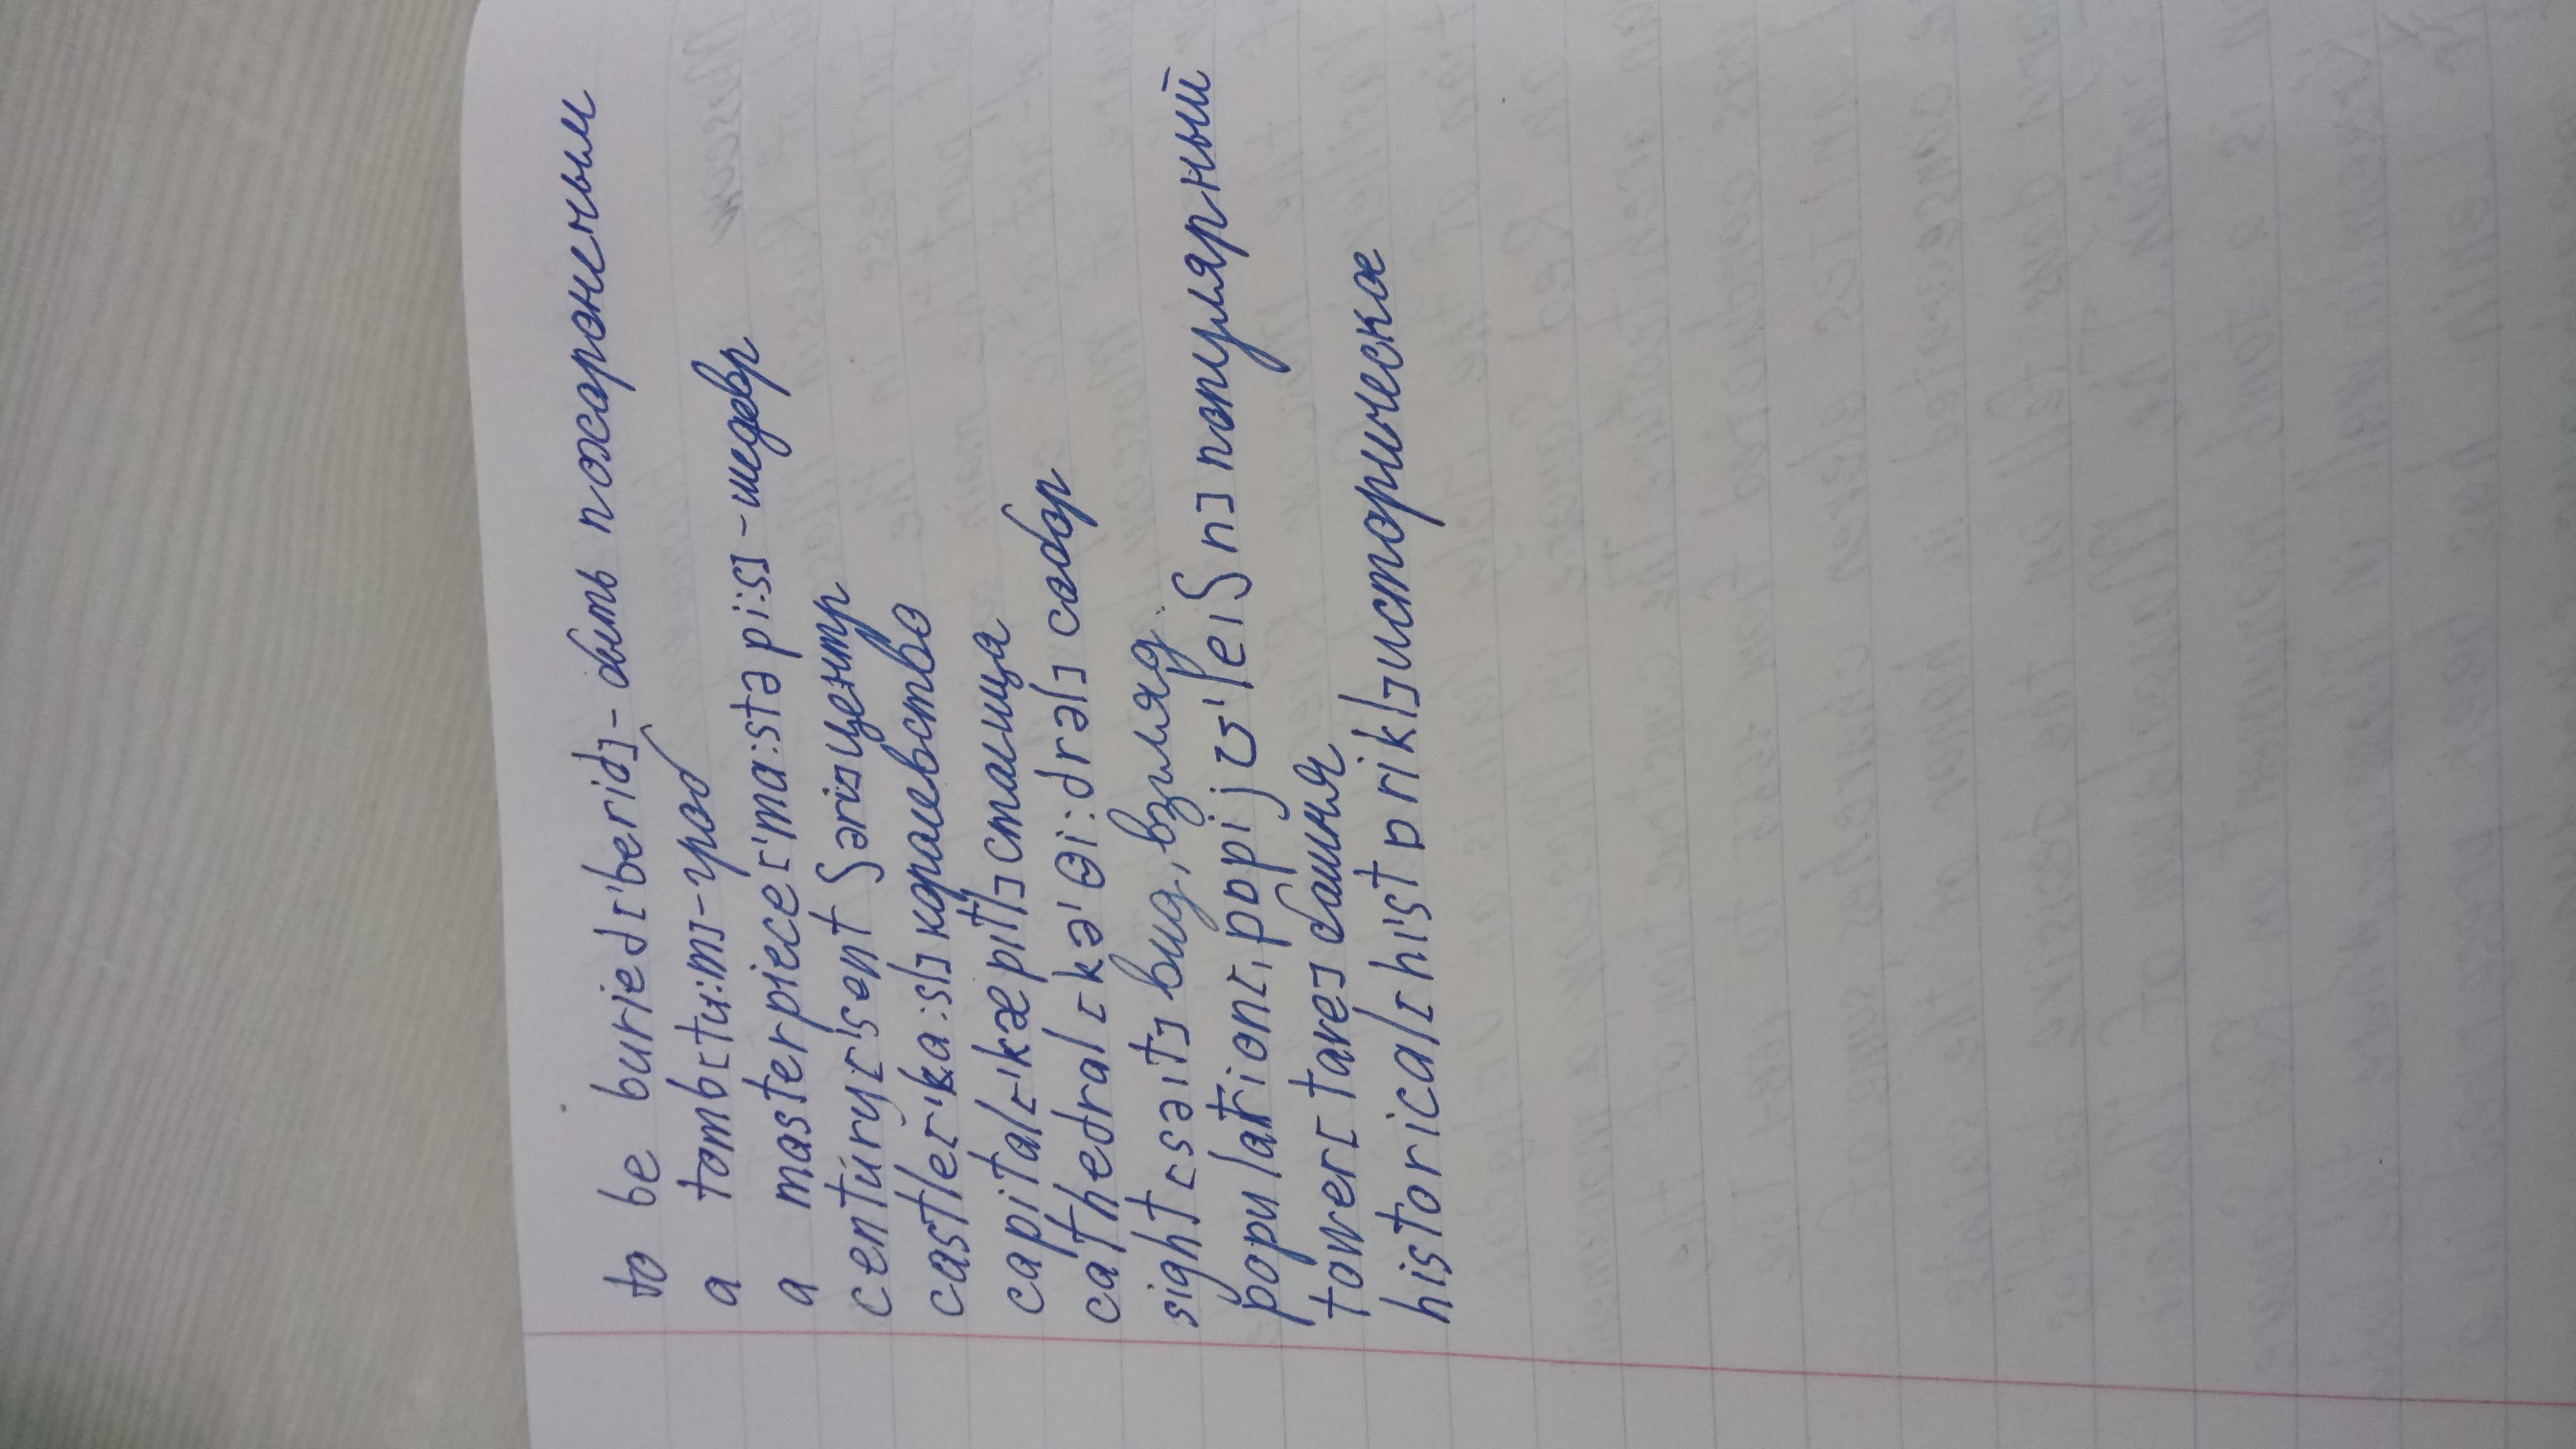 to be buried ['berid] - быть похороненным
a tomb [tu:m] - гроб
a masterpiece ['ma:stə pi:s] - шедевр
century ['sent ʃəri] центр
castle ['ka:sl] королевство
capital ['kæpitl] столица
cathedral [kə'θi:drəl] собор
sight [sait] вид, взгляд
population [ˌpɒpjʊ'leiʃn] популярный
tower [taʊə] башня
historical [his'tɒrikl] историческое